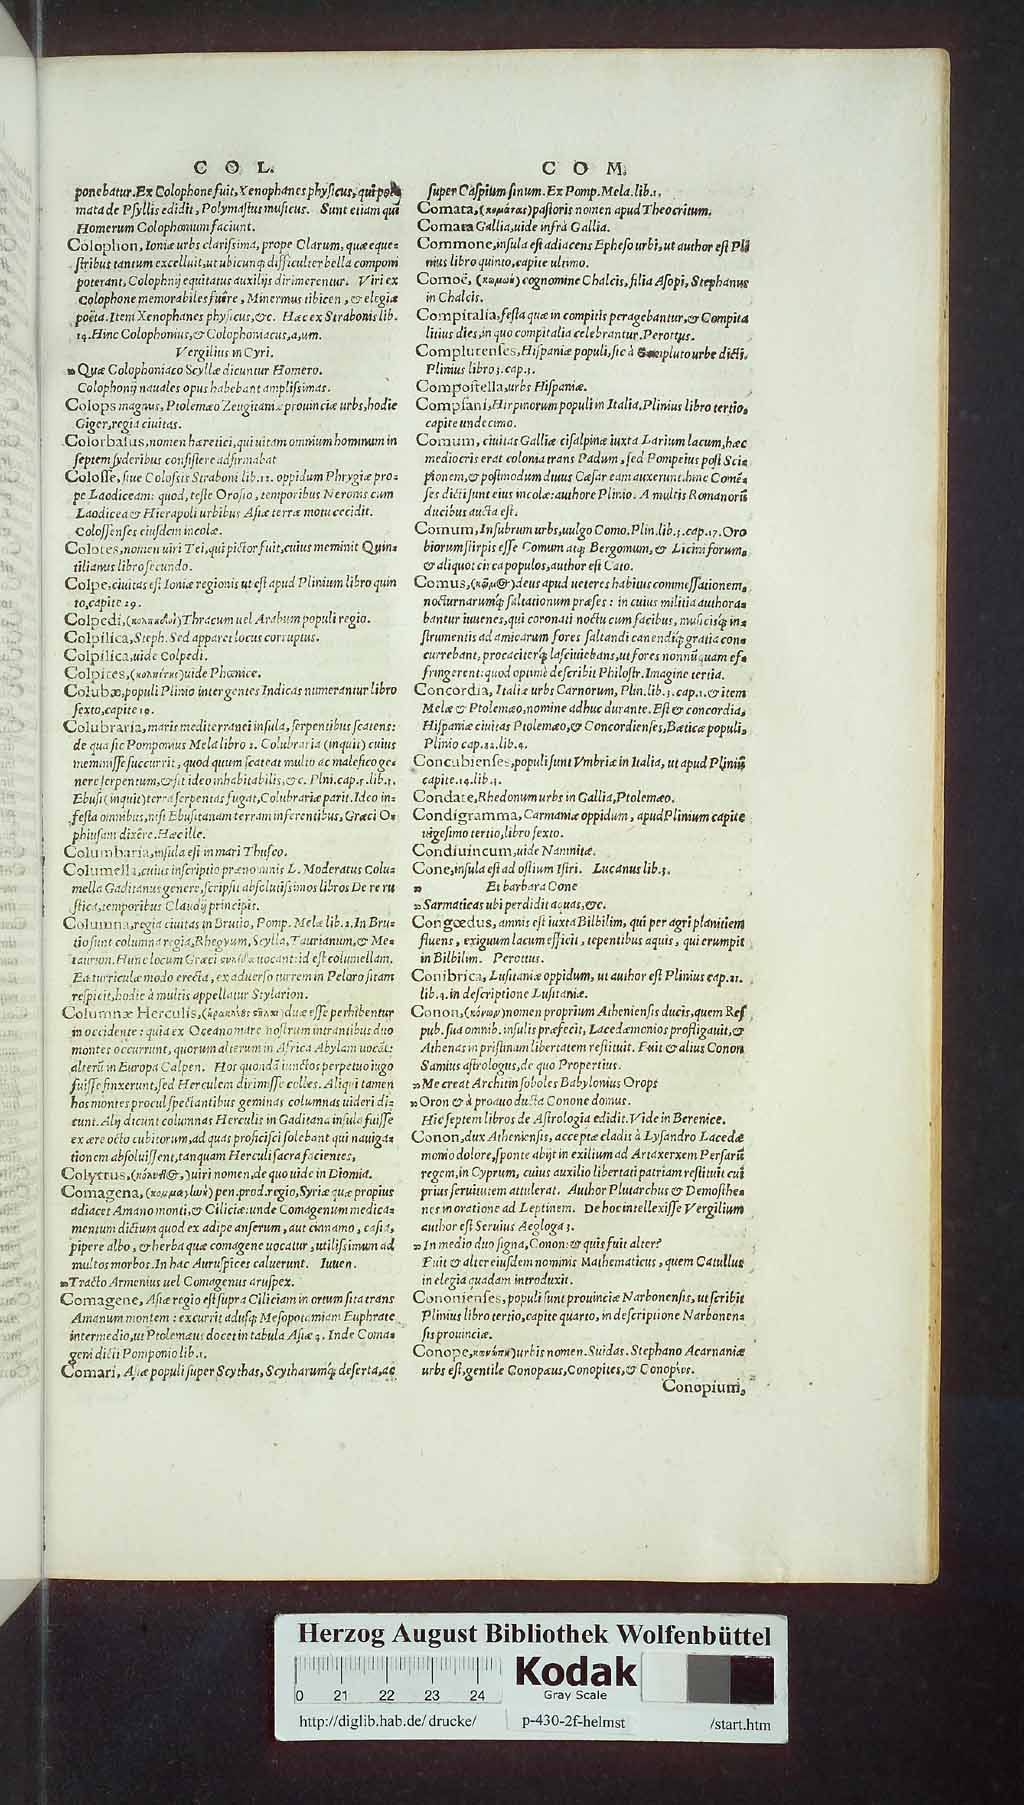 COL.
ponebatur. Ex Colophone fuit, Xenophanes physicus, qui poë
mata de Psyllis edidit, Polymastus musicus. Sunt etiam qui
Homerum Colophonium faciunt.
Colophon, Ioniæ urbs clarissima, prope Clarum, quæ eque-
stribus tantum excelluit, ut ubicunq; difficulter bella componi
poterant, Colophnij equitatus auxilijs dirimerentur. Viri ex
Colophone memorabiles fuêre, Minermus tibicen, & elegiæ
poëta. Item Xenophanes physicus, &c. Hæc ex Strabonis lib.
14. Hinc Colophonius, & Colophoniacus, a, um.
Vergilius in Cyri.
Quæ Colophoniaco Scyllæ dicuntur Homero.
Colophonij nauales opus habebant amplissimas.
Colops magnus, Ptolemæo Zeugitanæ prouinciæ urbs, hodie
Giger, regia ciuitas.
Colorbasus, nomen hæretici, qui uitam omnium hominum in
septem syderibus consistere adfirmabat
Colosse, siue Colossis Straboni lib. 12. oppidum Phrygiæ pro-
pe Laodiceam: quod, teste Orosio, temporibus Neronis cum
Laodicea & Hierapoli urbibus Asiæ terræ motu cecidit.
Colossenses eiusdem incolæ.
Colotes, nomen uiri Tei, qui pictor fuit, cuius meminit Quin-
tilianus libro secundo.
Colpe, ciuitas est Ioniæ regionis ut est apud Plinium libro quin
to, capite 29.
Colpedi, Thracum uel Arabum populi regio.
Colpilica, Steph. Sed apparet locus corruptus.
Colpilica, uide Colpedi.
Colpites, uide Phœnice.
Colubæ, populi Plinio inter gentes Indicas numerantur libro
sexto, capite 19.
Colubraria, maris mediterranei insula, serpentibus scatens:
de qua sic Pomponius Mela libro 2. Colubraria (inquit) cuius
meminisse succurrit, quod quum scateat multo ac malefico ge-
nere serpentum, & sit ideo inhabitabilis, &c. Plni. cap. 5. lib. 3.
Ebusi (inquit) terra serpentes fugat, Colubrariæ parit. Ideo in-
festa omnibus, nisi Ebusitanam terram inferentibus, Græci O-
phiusam dixêre. Hæc ille.
Columbaria, insula est in mari Thusco.
Columella, cuius inscriptio prænominis L. Moderatus Colu-
mella Gaditanus genere, scripsit absolutissimos libros De re ru
stica, temporibus Claudij principis.
Columna, regia ciuitas in Brutio, Pomp. Melæ lib. 2. In Bru-
tio sunt columna regia, Rhegyum, Scylla, Taurianum, & Me-
taurum. Hunc locum Græci uocant: id est columellam.
Ea turriculæ modo erecta, ex aduerso turrem in Peloro sitam
respicit, hodie à multis appellatur Stylarion.
Columnæ Herculis, duæ esse perhibentur
in occidente: quia ex Oceano mare nostrum intrantibus duo
montes occurrunt, quorum alterum in Africa Abylam uocāt:
alterū in Europa Calpen. Hos quondā iunctos perpetuo iugo
fuisse finxerunt, sed Herculem dirimisse colles. Aliqui tamen
hos montes procul spectantibus geminas columnas uideri di-
cunt. Alij dicunt columnas Herculis in Gaditana insula fuisse
ex ære octo cubitorum, ad quas proficisci solebant qui nauiga-
tionem absoluissent, tanquam Herculi sacra facientes,
Colyttus, uiri nomen, de quo uide in Diomia.
Comagena, pen. prod. regio, Syriæ quæ propius
adiacet Amano monti, & Ciliciæ: unde Comagenum medica-
mentum dictum quod ex adipe anserum, aut cinnamo, casia,
pipere albo, & herba quæ comagene uocatur, utilissimum ad
multos morbos. In hac Auruspices caluerunt. Iuuen.
Tracto Armenius uel Comagenus aruspex.
Comagene, Asiæ regio est supra Ciliciam in ortum sita trans
Amanum montem: excurrit adusq; Mesopotamiam Euphrate
intermedio, ut Ptolemæus docet in tabula Asiæ 4. Inde Coma-
geni dicti Pomponio lib. 1.
Comari, Asiæ populi super Scythas, Scytharumq; deserta, ac
COM.
super Caspium sinum. Ex Pomp. Mela. lib. 1.
Comata, (κομάτας) pastoris nomen apud Theocritum.
Comata Gallia, uide infrà Gallia.
Commone, insula est adiacens Epheso urbi, ut author est Pli
nius libro quinto, capite ultimo.
Comoë, cognomine Chalcis, filia Asopi, Stephanus
in Chalcis.
Compitalia, festa quæ in compitis peragebantur, & Compita
litius dies, in quo compitalia celebrantur. Perottus.
Complutenses, Hispaniæ populi, sic à Compluto urbe dicti.
Plinius libro 3. cap. 3.
Compostella, urbs Hispaniæ.
Compsani, Hirpinorum populi in Italia, Plinius libro tertio,
capite undecimo.
Comum, ciuitas Galliæ cisalpinæ iuxta Larium lacum, hæc
mediocris erat colonia trans Padum, sed Pompeius post Sci-
pionem, & postmodum diuus Cæsar eam auxerunt. hinc Comē-
ses dicti sunt eius incolæ: authore Plinio. A multis Romanorū
ducibus aucta est.
Comum, Insubrum urbs, uulgo Como. Plin. lib. 3. cap. 17. Oro
biorum stirpis esse Comum atq; Bergomum, & Licini forum,
& aliquot circa populos, author est Cato.
Comus, deus apud ueteres habitus commessationem,
nocturnarumq; saltationum præses: in cuius militia authora-
bantur iuuenes, qui coronati noctu cum facibus, musicisq; in-
strumentis ad amicarum fores saltandi canendiq; gratia con-
currebant, procaciterq; lasciuiebans, ut fores nonnūquam ef-
fringerent: quod optimè describit Philostr. Imagine tertia.
Concordia, Italiæ urbs Carnorum, Plin. lib. 3. cap. 1. & item
Melæ & Ptolemæo, nomine adhuc durante. Est & concordia,
Hispaniæ ciuitas Ptolemæo, & Concordienses, Bæticæ populi,
Plinio cap. 22. lib. 4.
Concubienses, populi sunt Vmbriæ in Italia, ut apud Pliniū
capite. 14. lib. 3.
Condate, Rhedonum urbs in Gallia, Ptolemæo.
Condigramma, Carmaniæ oppidum, apud Plinium capite
uigesimo tertio, libro sexto.
Condiuincum, uide Namnitæ.
Cone, insula est ad ostium Istri. Lucanus lib. 3.
Et barbara Cone
Sarmaticas ubi perdidit aquas, &c.
Congœdus, amnis est iuxta Bilbilim, qui per agri planitiem
fluens, exiguum lacum efficit, tepentibus aquis, qui erumpit
in Bilbilim. Perottus.
Conibrica, Lusitaniæ oppidum, ut author est Plinius cap. 21.
lib. 4. in descriptione Lusitaniæ.
Conon, (κόνων) nomen proprium Atheniensis ducis, quem Res
pub. sua omnib. insulis præfecit, Lacedæmonios profligauit, &
Athenas in pristinam libertatem restituit. Fuit & alius Conon
Samius astrologus, de quo Propertius.
Me creat Architin soboles Babylonius Orops
Oron & à proauo ducta Conone domus.
Hic septem libros de Astrologia edidit. Vide in Berenice.
Conon, dux Atheniensis, acceptæ cladis à Lysandro Lacedæ
monio dolore, sponte abijt in exilium ad Artaxerxem Persarū
regem, in Cyprum, cuius auxilio libertati patriam restituit cui
prius seruitutem attulerat. Author Plutarchus & Demosthe-
nes in oratione ad Leptinem. De hoc intellexisse Vergilium
author est Seruius Aegloga 3.
In medio duo signa, Conon: & quis fuit alter?
Fuit & alter eiusdem nominis Mathematicus, quem Catullus
in elegia quadam introduxit.
Cononienses, populi sunt prouinciæ Narbonensis, ut scribit
Plinius libro tertio, capite quarto, in descriptione Narbonen-
sis prouinciæ.
Conope, urbis nomen. Suidas. Stephano Acarnaniæ
urbs est, gentile Conopæus, Conopites, & Conopios.
Conopium,
Herzog August Bibliothek Wolfenbüttel
0 21 22 23 24
Kodak
Gray Scale
http://diglib.hab.de/drucke/ p-430-2f-helmst /start.htm